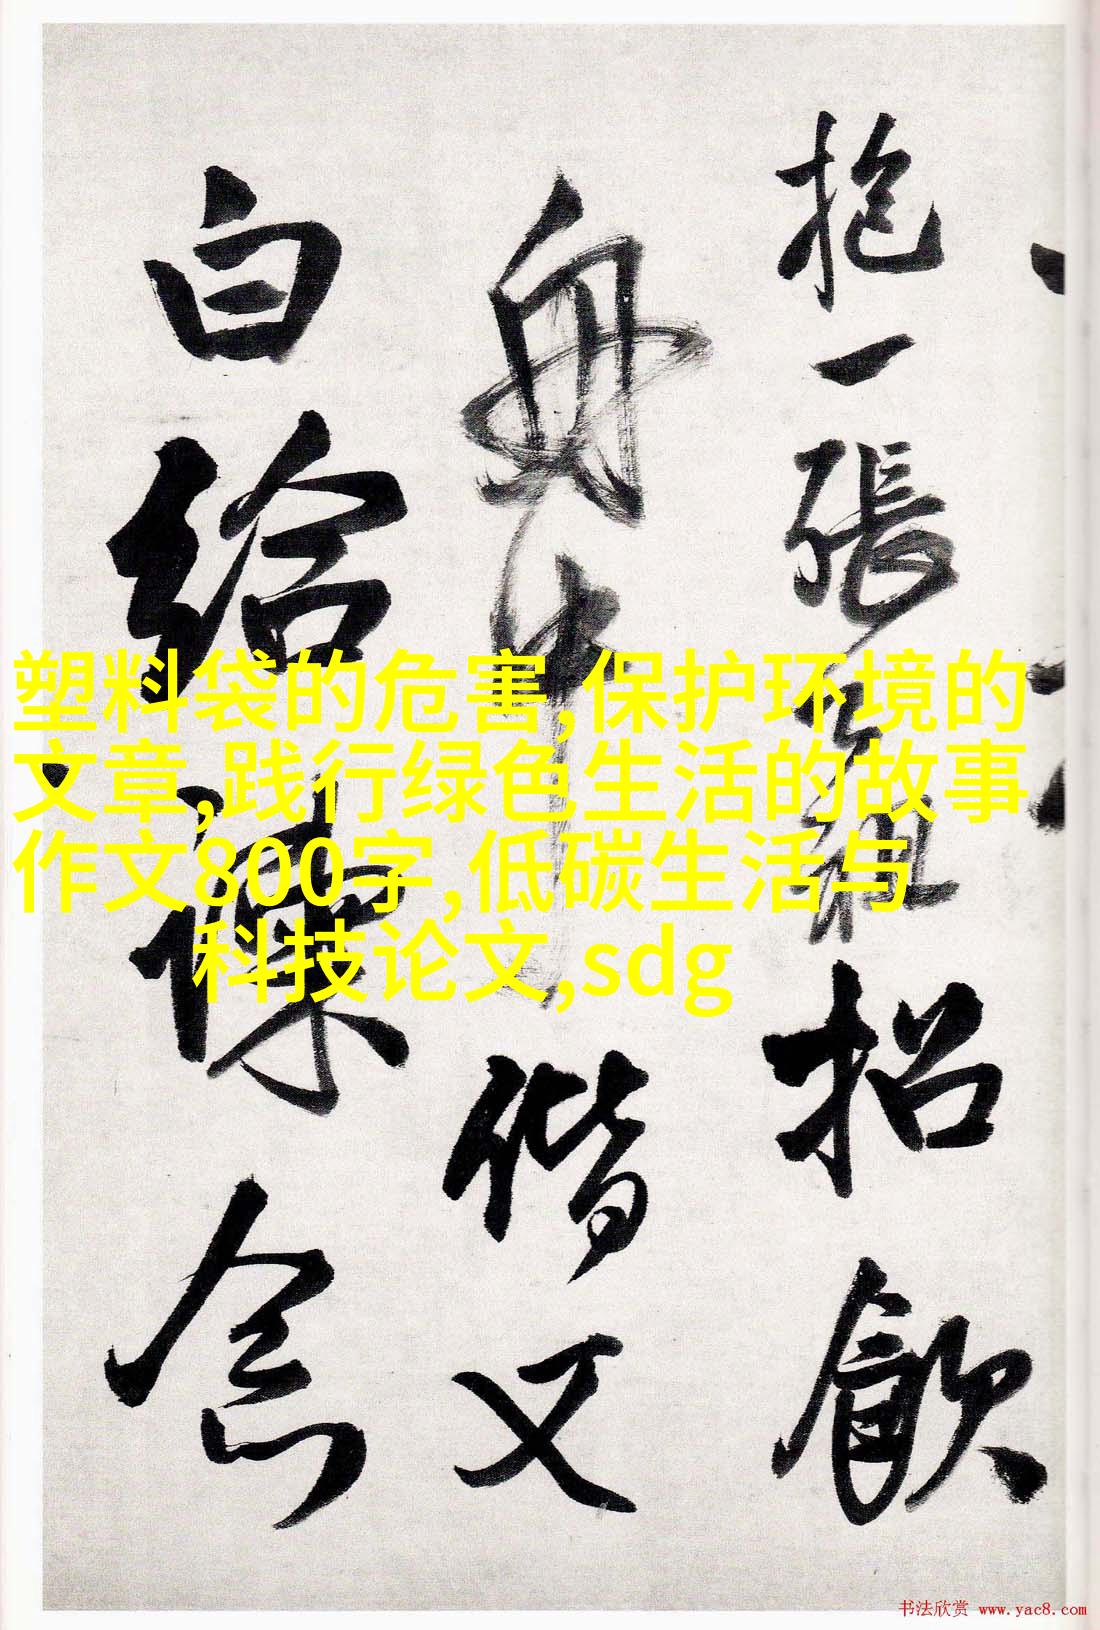 抱一張君祖招飲
舟中偕又
白給諫念
塑料袋的危害,保护环境的
文章,践行绿色生活的故事
作文800字,低碳生活与
科技论文,sdg
书法欣赏 www.yac8.com